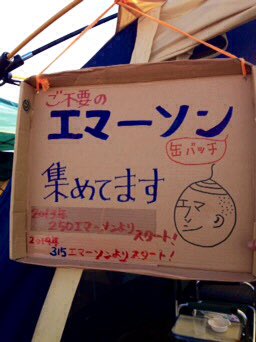 ご不要の
エマーソン
缶バッチ
集めてます
2018年
250エマーソンより
スタート!
2019年
315エマーソンよりスタート!
エマーソンの